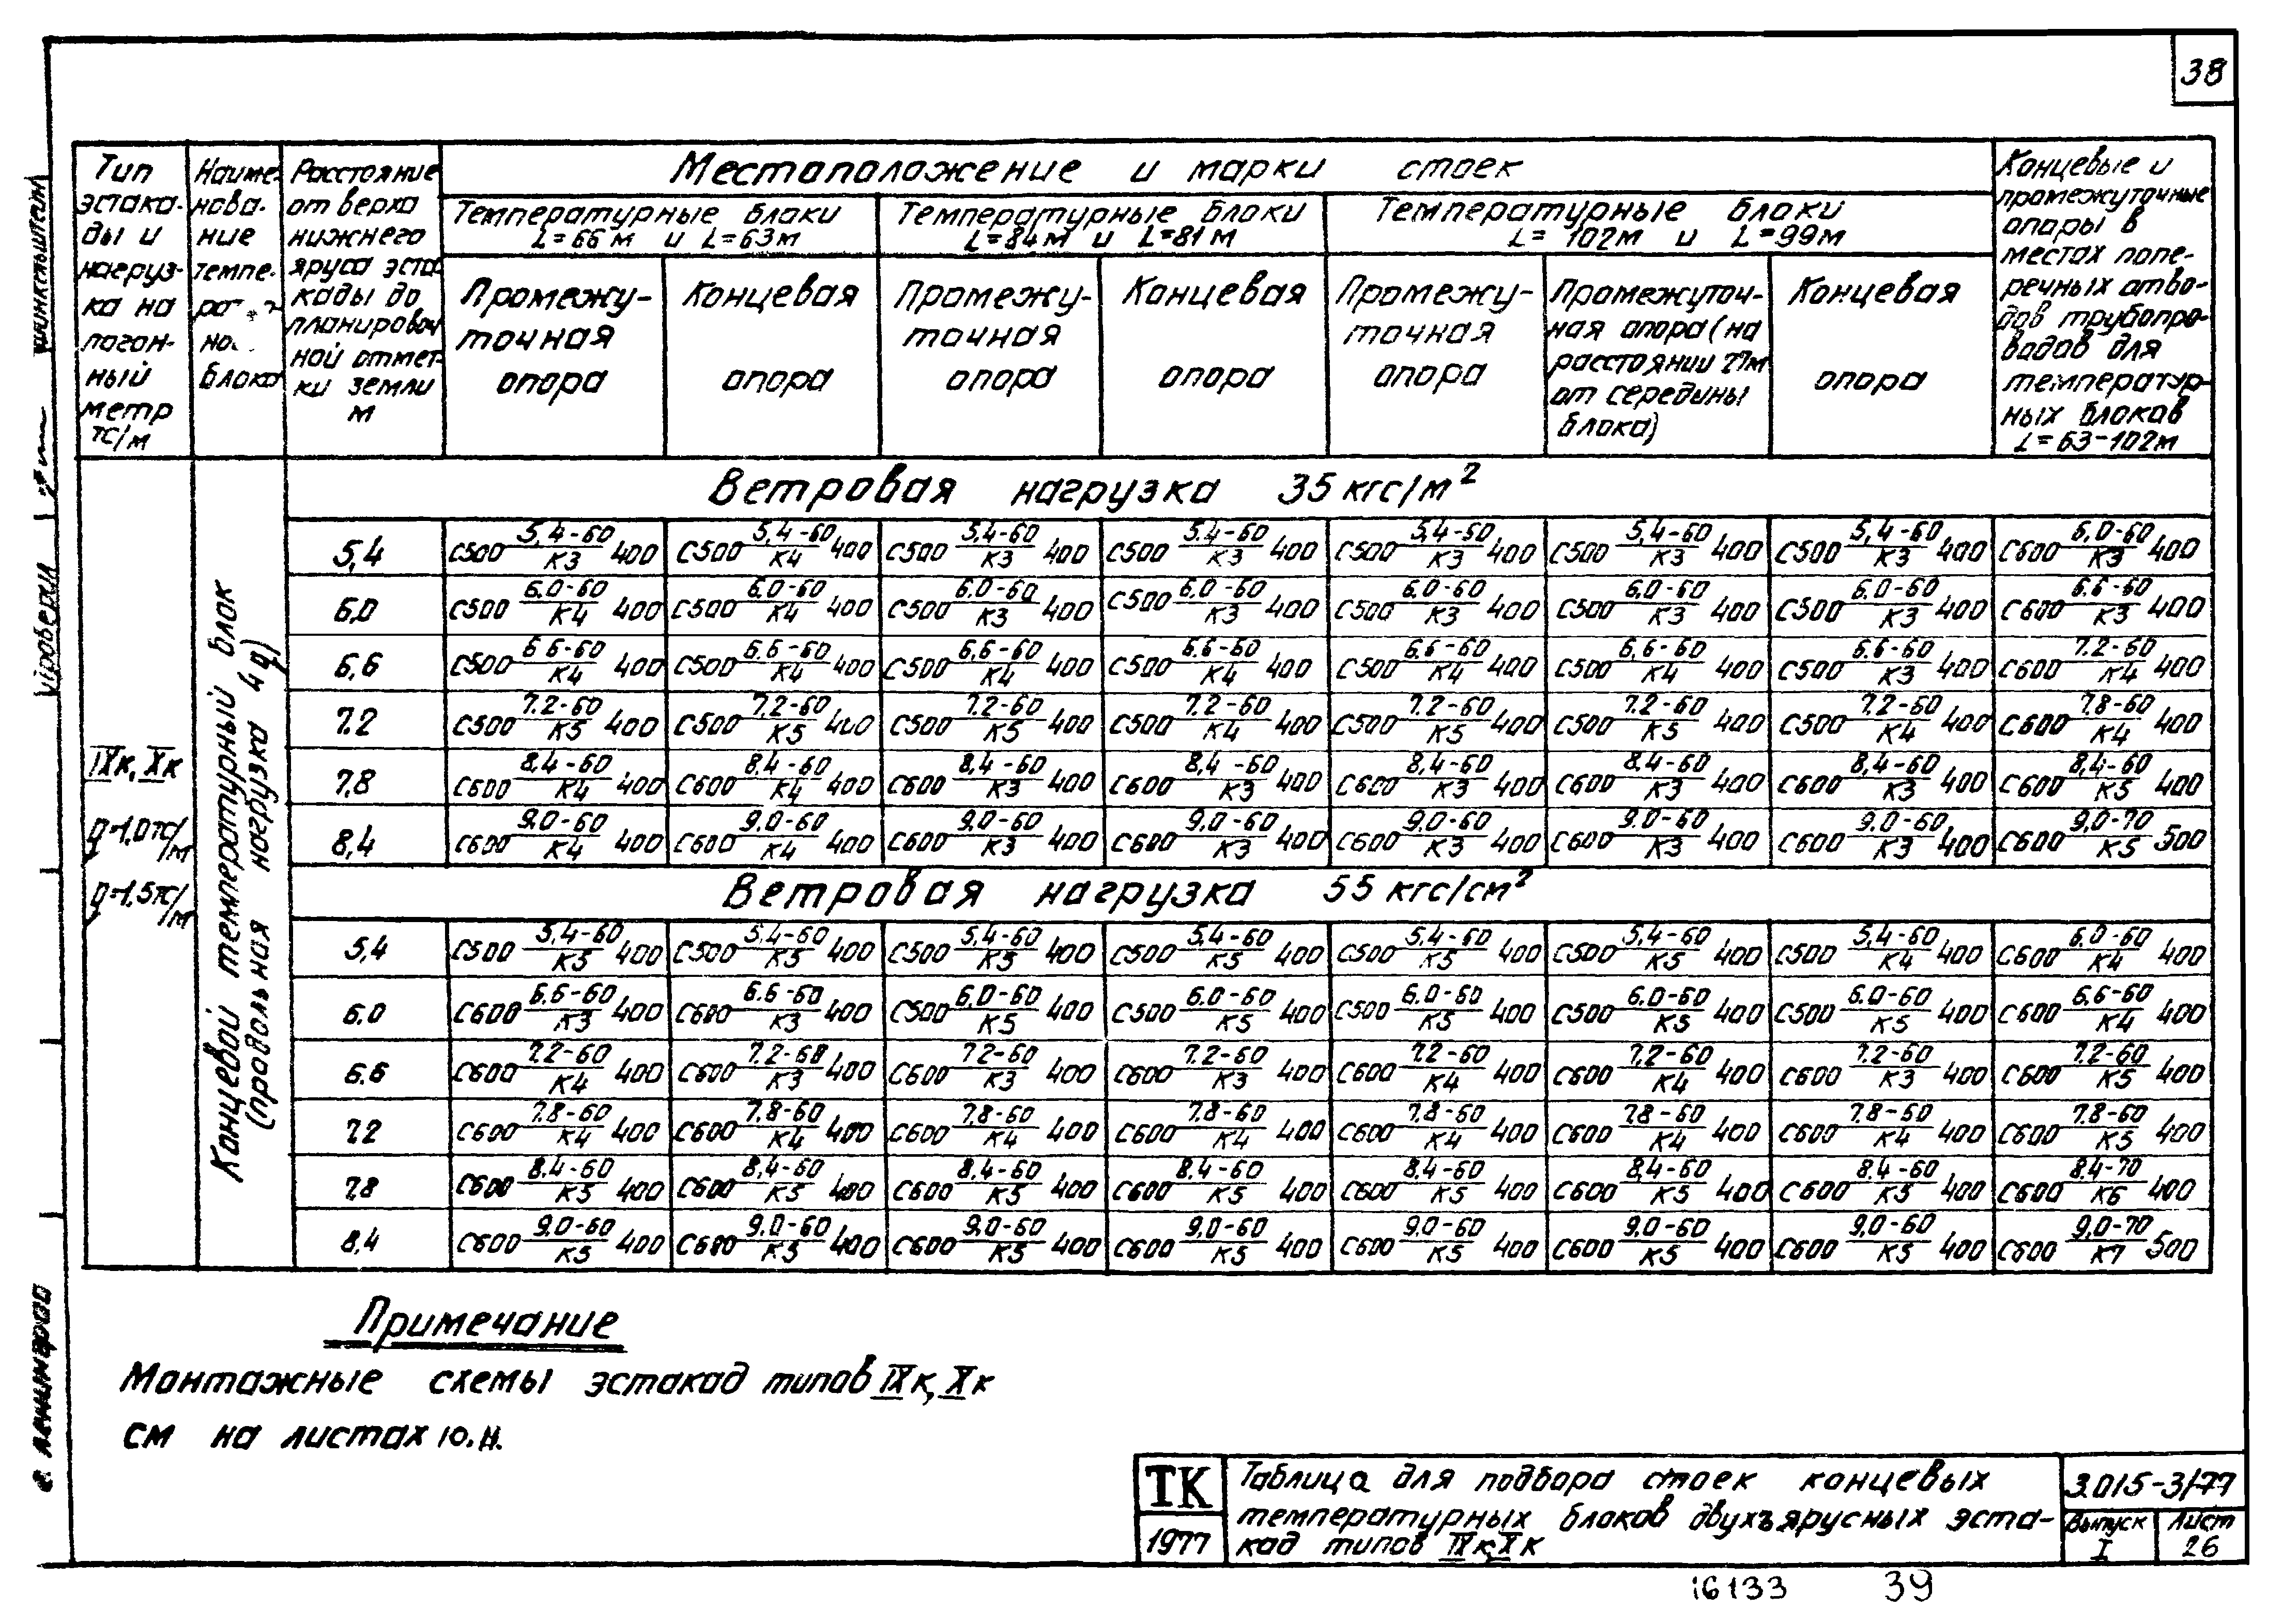 38
Тип эстака- ды и нагруз- ка на погон- ный метр тс/м
Наиме- нова- ние темпе- блока
Расстояние от верха нижнего яруса эста- кады до планировоч ной отмет- ки земли м
Местоположение и марки стоек
Температурные блоки L=66м и L=63м
Температурные блоки L=84м и L=81м
Температурные блоки L=102м и L=99м
Концевые и промежуточные опоры в местах попе- речных отво- дов трубопро- водов для температур- ных блоков L=63-102м
Промежу- точная опора
Концевая опора
Промежу- точная опора
Концевая опора
Промежу- точная опора
Промежуточ- ная опора (на расстоянии 27м от середины блока)
Концевая опора
IXк, Xк
q=1,0тс/м
q=1,5тс/м
Концевой температурный блок
(продольная нагрузка 4q)
Ветровая нагрузка 35 кгс/м²
5,4 С500 5,4-60/К3 400 С500 5,4-60/К4 400 С500 5,4-60/К3 400 С500 5,4-60/К3 400 С500 5,4-60/К3 400 С500 5,4-60/К3 400 С500 5,4-60/К3 400 С600 6,0-60/К3 400
6,0 С500 6,0-60/К4 400 С500 6,0-60/К4 400 С500 6,0-60/К3 400 С500 6,0-60/К3 400 С500 6,0-60/К3 400 С500 6,0-60/К3 400 С500 6,0-60/К3 400 С600 6.6-60/К3 400
6,6 С500 6.6-60/К4 400 С500 6.6-60/К4 400 С500 6,6-60/К4 400 С500 6.6-60/К4 400 С500 6.6-60/К4 400 С500 6,6-60/К4 400 С500 6.6-60/К3 400 С600 7.2-60/К4 400
7.2 С500 7.2-60/К5 400 С500 7,2-60/К5 400 С500 7.2-60/К5 400 С500 7.2-60/К4 400 С500 7.2-60/К5 400 С500 7.2-60/К5 400 С500 7.2-60/К4 400 С600 7.8-60/К4 400
7,8 С600 8,4-60/К4 400 С600 8,4-60/К4 400 С600 8,4-60/К3 400 С600 8,4-60/К3 400 С600 8,4-60/К3 400 С600 8,4-60/К3 400 С600 8,4-60/К3 400 С600 8,4-60/К5 400
8,4 С600 9.0-60/К4 400 С600 9.0-60/К4 400 С600 9.0-60/К3 400 С600 9,0-60/К3 400 С600 9.0-60/К3 400 С600 9.0-60/К3 400 С600 9.0-60/К3 400 С600 9,0-70/К5 500
Ветровая нагрузка 55 кгс/см²
5,4 С500 5,4-60/К5 400 С500 5,4-60/К5 400 С500 5,4-60/К5 400 С500 5,4-60/К5 400 С500 5,4-60/К5 400 С500 5,4-60/К5 400 С500 5,4-60/К4 400 С600 6.0-60/К4 400
6.0 С600 6.6-60/К3 400 С600 6.6-60/К3 400 С500 6,0-60/К5 400 С500 6.0-60/К5 400 С500 6.0-60/К5 400 С500 6.0-60/К5 400 С500 6.0-60/К5 400 С600 6,6-60/К4 400
6.6 С600 7.2-60/К4 400 С600 7.2-60/К3 400 С600 7.2-60/К3 400 С600 7.2-60/К3 400 С600 7.2-60/К4 400 С600 7,2-60/К4 400 С600 7.2-60/К3 400 С600 7.2-60/К5 400
7.2 С600 7.8-60/К4 400 С600 7,8-60/К4 400 С600 7,8-60/К4 400 С600 7.8-60/К4 400 С600 7.8-60/К4 400 С600 7.8-60/К4 400 С600 7.8-60/К4 400 С600 7.8-60/К5 400
7.8 С600 8.4-60/К5 400 С600 8,4-60/К5 400 С600 8.4-60/К5 400 С600 8.4-60/К5 400 С600 8.4-60/К5 400 С600 8,4-60/К5 400 С600 8.4-60/К5 400 С600 8.4-70/К6 400
8,4 С600 9.0-60/К5 400 С600 9.0-60/К5 400 С600 9,0-60/К5 400 С600 9.0-60/К5 400 С600 9.0-60/К5 400 С600 9.0-60/К5 400 С600 9,0-60/К5 400 С600 9,0-70/К7 500
Примечание
Монтажные схемы эстакад типов IXк, Xк
см на листах 10.11.
ТК
1977
Таблица для подбора стоек концевых
температурных блоков двухъярусных эста-
кад типов IXк, Xк
3.015-3/77
Выпуск I
Лист 26
16133 39
Проверил
г. Ленинград